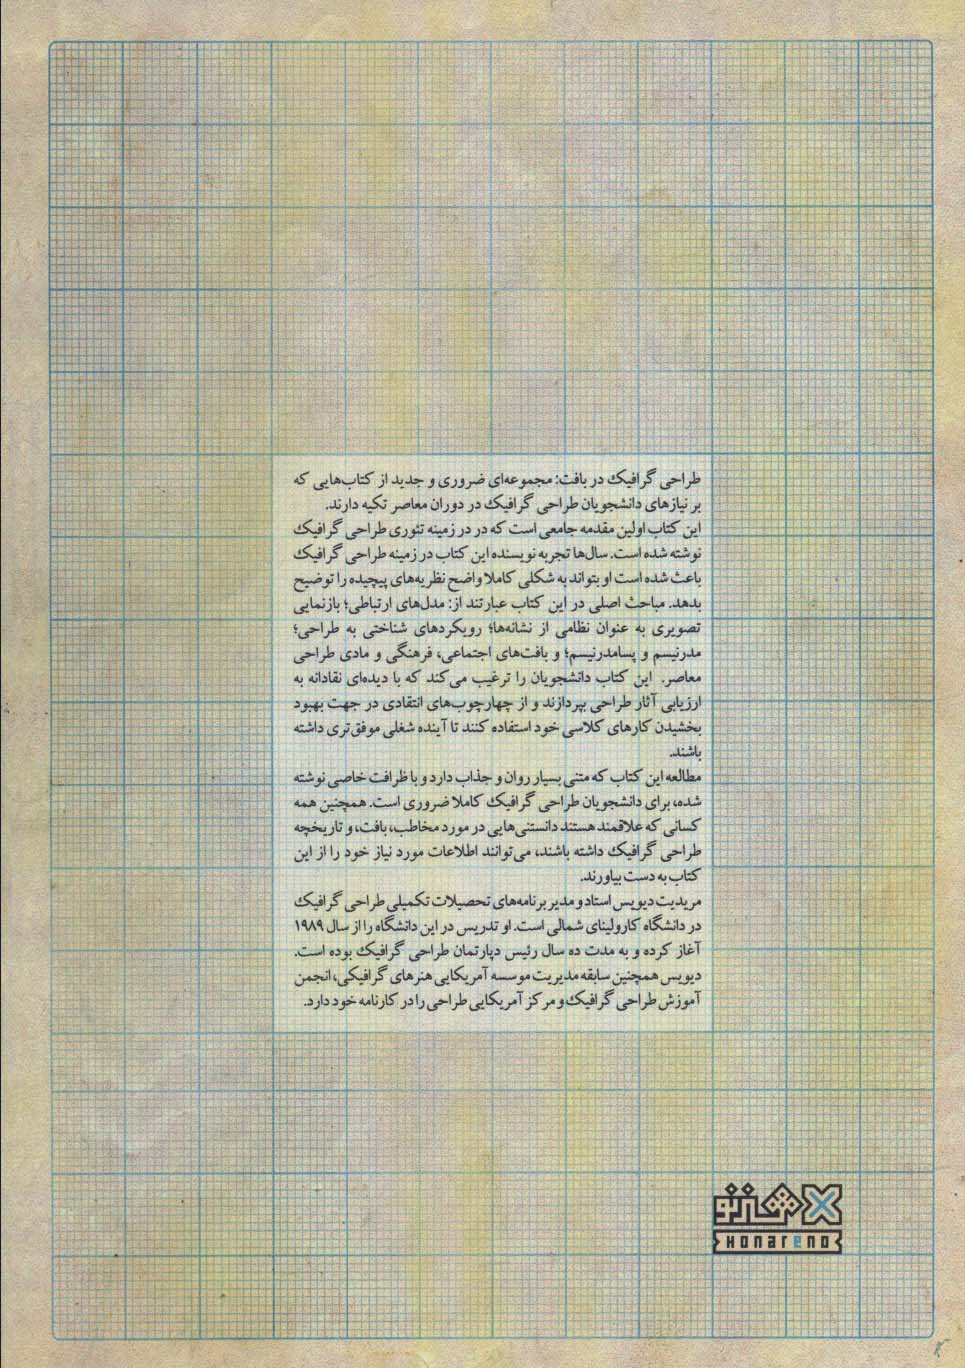 طراحی گرافیک در بافت: مجموعه‌ای ضروری و جدید از کتاب‌هایی که
بر نیازهای دانشجویان طراحی گرافیک در دوران معاصر تکیه دارند.
این کتاب اولین مقدمه جامعی است که در در زمینه تئوری طراحی گرافیک
نوشته شده است. سال‌ها تجربه نویسنده این کتاب در زمینه طراحی گرافیک
باعث شده است او بتواند به شکلی کاملا واضح نظریه‌های پیچیده را توضیح
بدهد. مباحث اصلی در این کتاب عبارتند از: مدل‌های ارتباطی؛ بازنمایی
تصویری به عنوان نظامی از نشانه‌ها؛ رویکردهای شناختی به طراحی؛
مدرنیسم و پسامدرنیسم؛ و بافت‌های اجتماعی، فرهنگی و مادی طراحی
معاصر. این کتاب دانشجویان را ترغیب می‌کند که با دیده‌ای نقادانه به
ارزیابی آثار طراحی بپردازند و از چهارچوب‌های انتقادی در جهت بهبود
بخشیدن کارهای کلاسی خود استفاده کنند تا آینده شغلی موفق‌تری داشته
باشند.
مطالعه این کتاب که متنی بسیار روان و جذاب دارد و با ظرافت خاصی نوشته
شده، برای دانشجویان طراحی گرافیک کاملا ضروری است. همچنین همه
کسانی که علاقمند هستند دانستنی‌هایی در مورد مخاطب، بافت، و تاریخچه
طراحی گرافیک داشته باشند، می‌توانند اطلاعات مورد نیاز خود را از این
کتاب به دست بیاورند.
مریدیت دیویس استاد و مدیر برنامه‌های تحصیلات تکمیلی طراحی گرافیک
در دانشگاه کارولینای شمالی است. او تدریس در این دانشگاه را از سال ۱۹۸۹
آغاز کرده و به مدت ده سال رئیس دپارتمان طراحی گرافیک بوده است.
دیویس همچنین سابقه مدیریت موسسه آمریکایی هنرهای گرافیکی، انجمن
آموزش طراحی گرافیک و مرکز آمریکایی طراحی را در کارنامه خود دارد.
هنرنو
Honareno